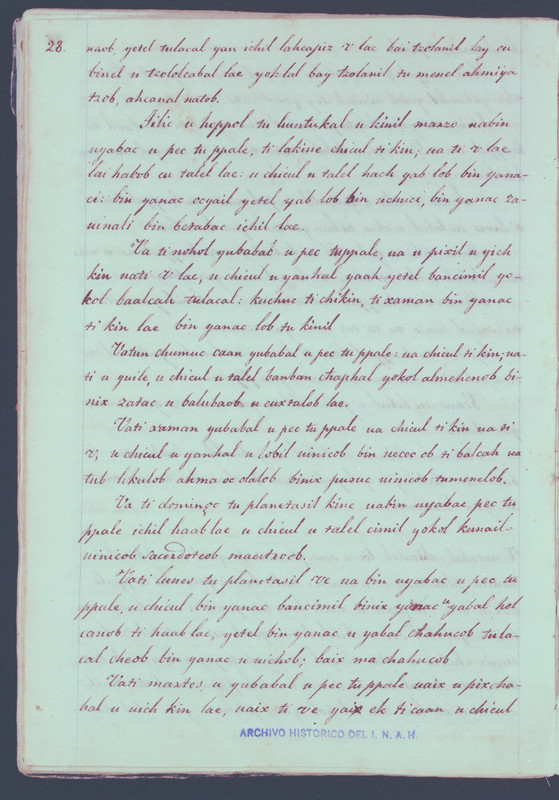 28. naob, yetel tulacal yan ichil lahcapiz v lae bai tzolanil lay cu
binel u tzololcabal lae yoklal bay tzolanil tu menel ahmiya
tzob, ahcanal natob.
Filic u hoppol tu huntukal u kinil marzo nabin
uyabac u pec tu ppale, ti lakine chicul ti kin; ua ti v lae
lai hatob cu talel lae: u chicul u talel hach yab lob bin yana-
ci: bin yanac ocyail yetel yab lob bin uchuci, bin yanac za-
uinali bin betabac ichil lae.
Va ti nohol yubabal u pec tuppale, ua u pixil u yich
kin uati v lae, u chicul u yanhal yaah yetel bancimil yo-
kol baalcah tulacal: kuchuc ti chikin, ti xaman bin yanac
ti kin lae bin yanac lob tu kinil
Vatun chumuc caan yubabal u pec tu ppale: ua chicul ti kin; ua-
ti u yuile, u chicul u talel banban chaphal yokol almehenob bi-
nix zatac u balubaob u cuxtalob lae.
Vati xaman yubabal u pec tu ppale ua chicul ti kin ua ti
v; u chicul u yanhal u lobil uinicob bin uecec ob ti balcah ua
tub likulob ahma oc olalob binix puxuc uinicob tumenelob.
Va ti domingo tu planetasil kine uabin uyabac pec tu
ppale ichil haab lae u chicul u talel cimil yokol kunail-
uinicob sacerdoteob maestroob.
Vati lunes tu planetasil ve ua bin uyabac u pec tu
ppale, u chicul bin yanac bancimil binix yanac u yabal hol
canob ti haab lae; yetel bin yanac u yabal chahucob tula-
cal cheob bin yanac u uichob; baix ma chahucob
Vati martes u yubabal u pec tu ppale uaix u pixcha-
hal u uich kin lae, uaix ti ve yaix ek ti caan u chicul
ARCHIVO HISTORICO DEL I. N. A. H.